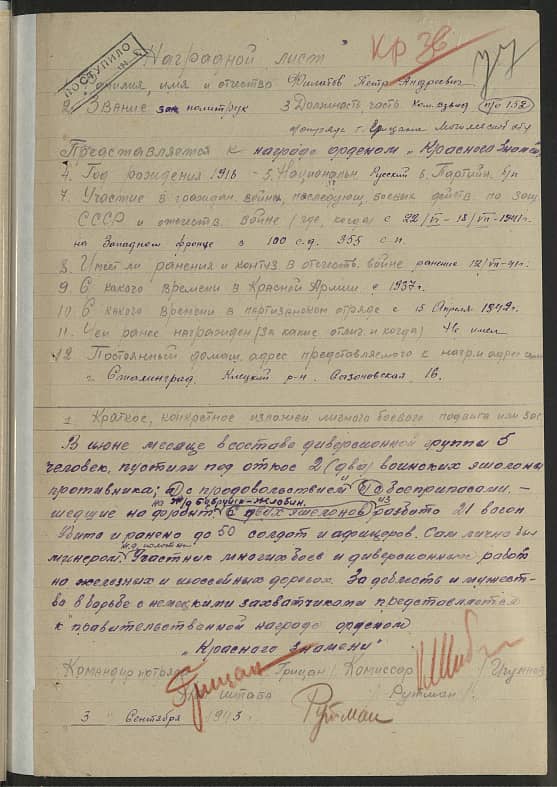 ПОСТУПИЛО
Кр Зв
Наградной лист
фамилия, имя и отчество Филатов Петр Андреевич
2. Звание зам политрук 3. Должность, часть Ком. взвод п/о 152
г. Грицана Могилевской обл
Представляется к награде орденом „Красного Знам
4. Год рождения 1916 5. Национальн. Русский 6. Партийн. б/п
7. Участие в граждан. войне, последующ. боевых действ по защ
СССР и отечеств. войне (где, когда) с 22/VI - 18/VII-1941г.
на Западном фронте в 100 с.д. 355 с.п.
8. Имеет ли ранения и контуз в отечеств. войне ранение 12/VII-41г.
9. С какого времени в Красной Армии с 1937г.
10. С какого времени в партизанском отряде с 15 Апреля 1942г.
11. Чем ранее награжден (за какие отлич. и когда) Не имел
12. Постоянный домаш. адрес представляемого к нагр. и адрес
г. Сталинград. Клецкий р-н. Сазоновская 16.
1 Краткое, конкретное изложен личного боевого подвига или зас
В июне месяце в составе диверсионной группы 5
человек, пустили под откос 2 (два) воинских эшелона
противника; с продовольствием и с боеприпасами, —
на ж/д Бобруйск-Жлобин. из
шедшие на фронт. С двух эшелонов разбито 21 вагон
Убито и ранено до 50 солдат и афицеров. Сам лично был
ж.д. полотна
минером. Участник многих боев и диверсионных работ
на железных и шоссейных дорогах. За доблесть и мужест-
во в борьбе с немецкими захватчиками представляется
к правительственной награде орденом
„Красного Знамени"
Командир отряда Грицан / Комиссар
Грицан штаба / Рутман /
Рутман
3 Сентября 1943